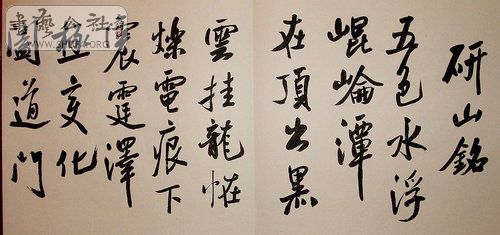 研山銘
五色水浮
崐崘潭
在頂出黑
雲挂龍恠
爍電痕下
震霆澤
變化
闔道門
書藝公社